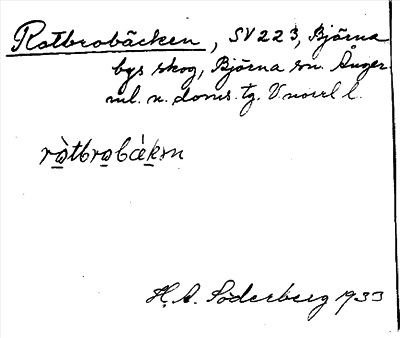 Rotbrobäcken, SV 223, Björna
bys skog, Björna sn. Ånger-
ml. n. doms. tg. V norrl l.
ròtbrobä́kɛn
H. A. Söderberg 1933